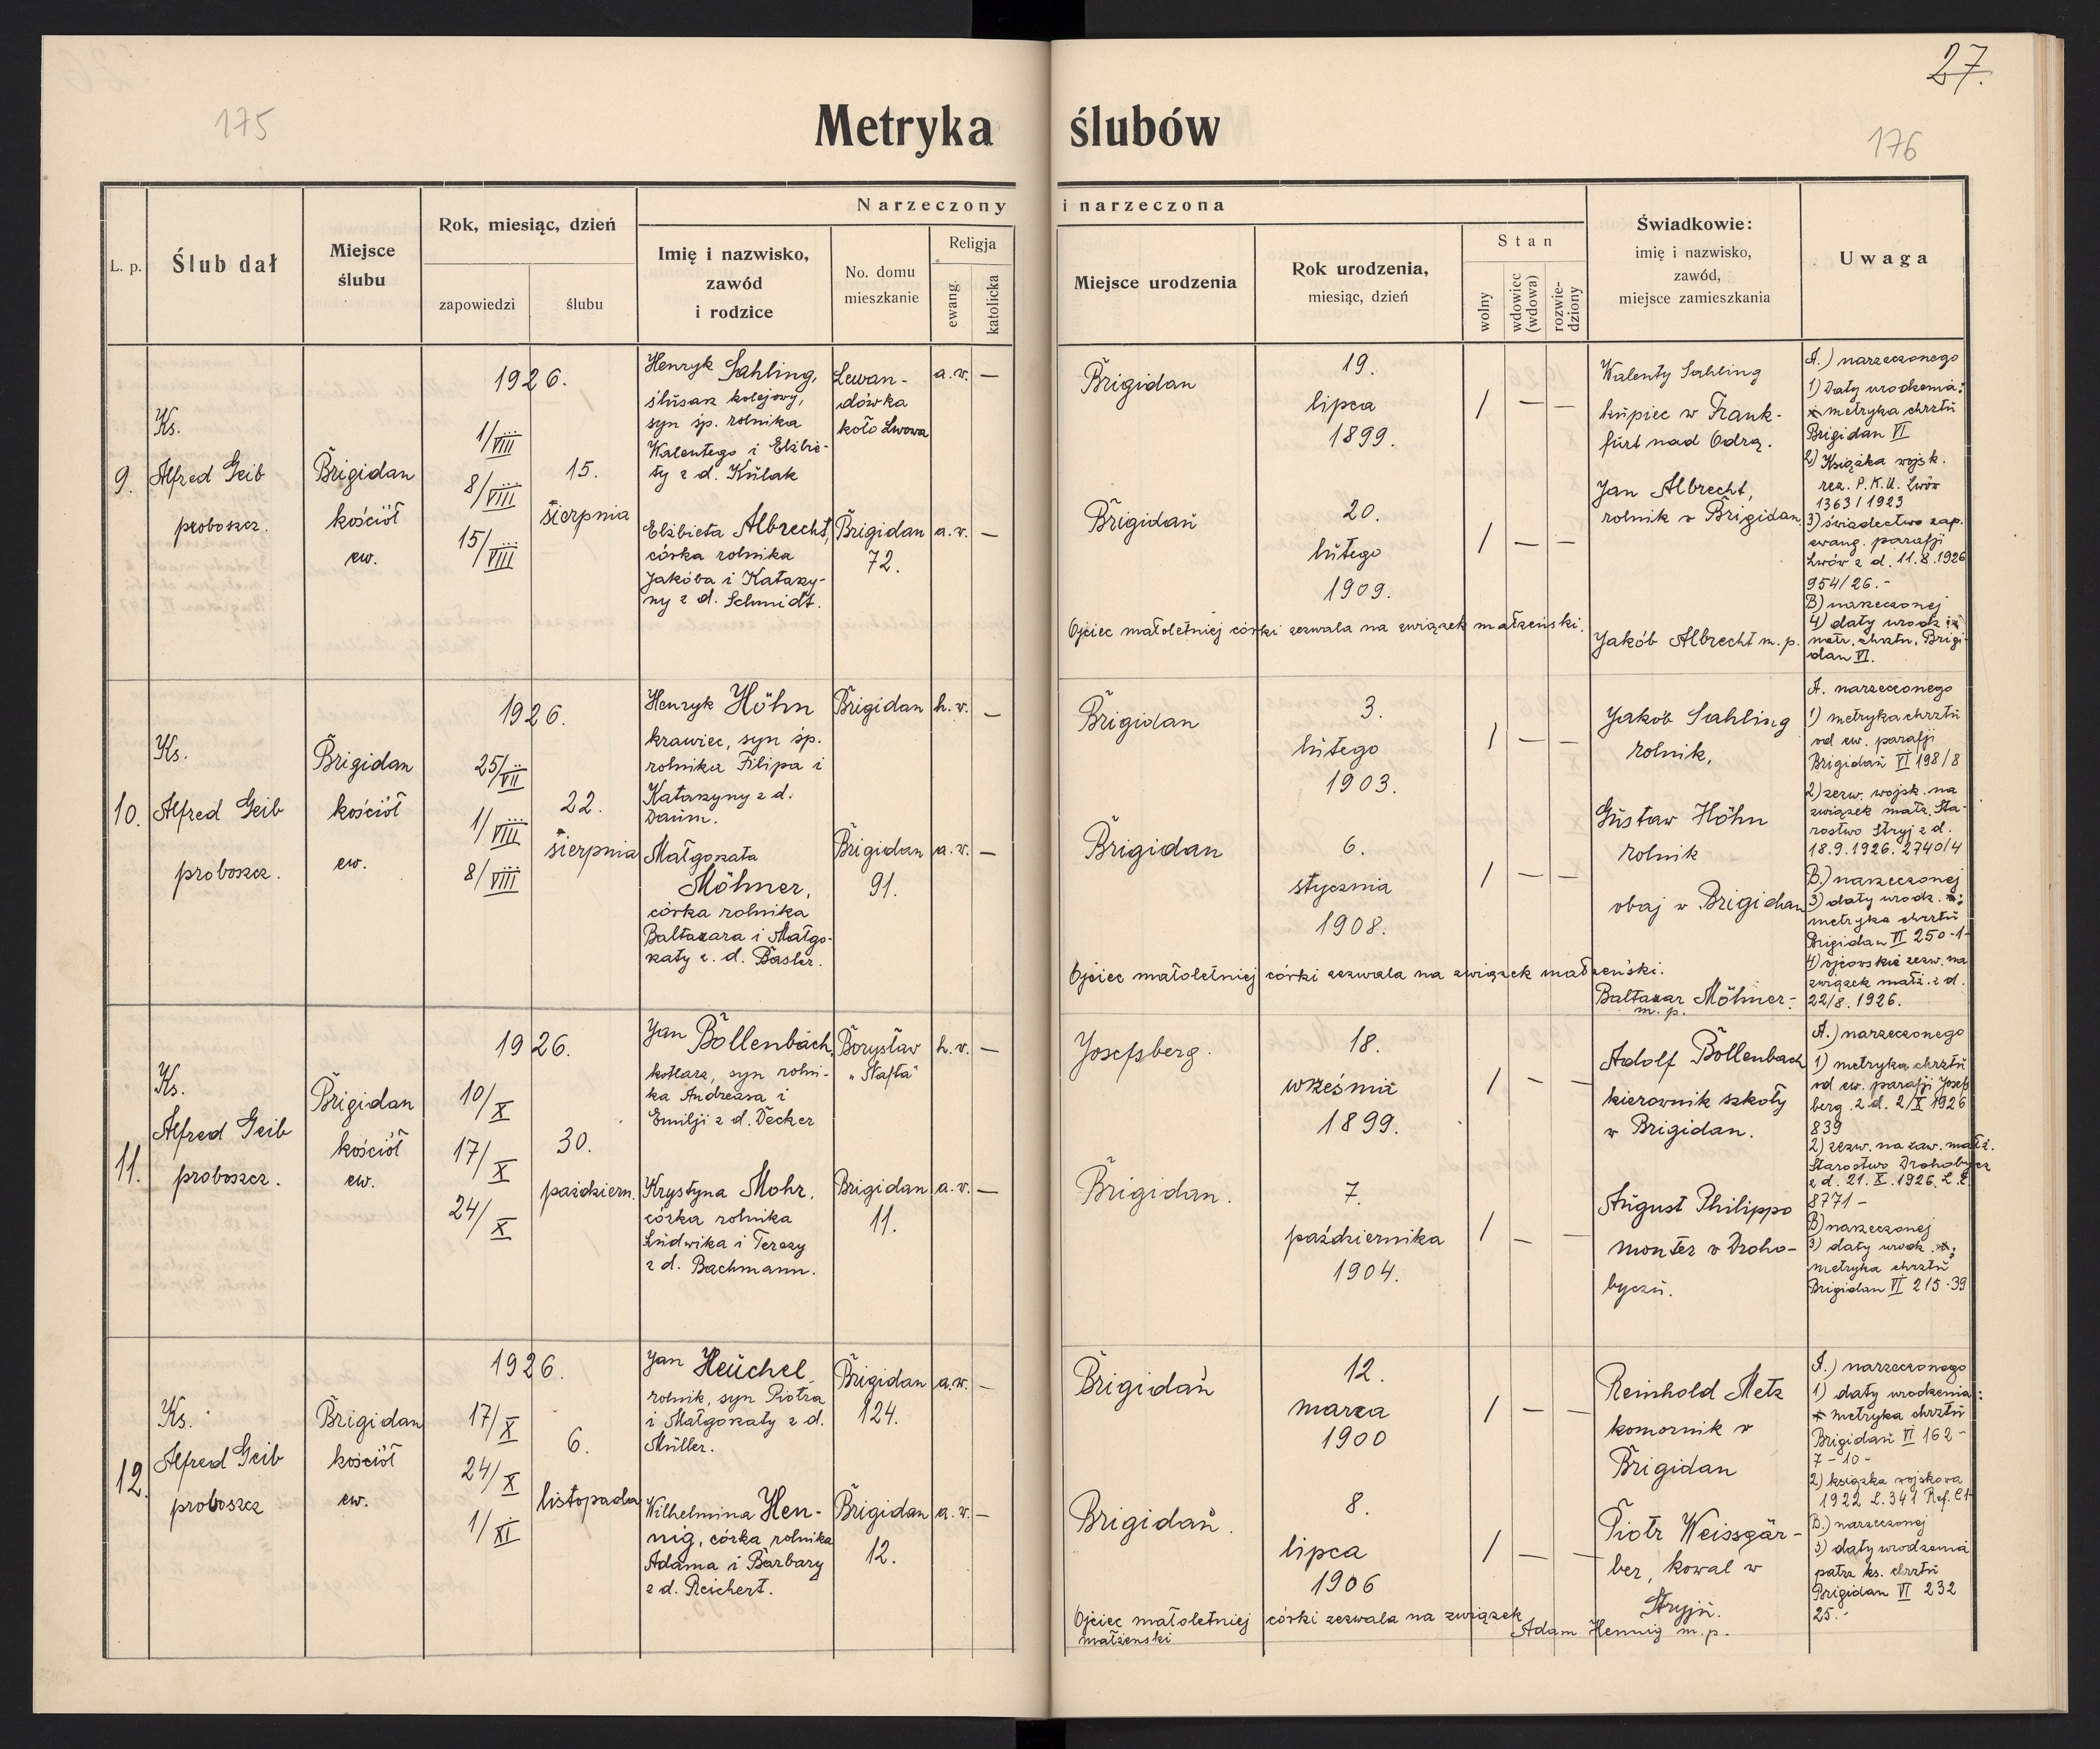 27.
175
176
Metryka ślubów
L. p.
Ślub dał
Miejsce
ślubu
Rok, miesiąc, dzień
zapowiedzi
ślubu
Narzeczony i narzeczona
Imię i nazwisko,
zawód
i rodzice
No. domu
mieszkanie
Religja
ewang.
katolicka
Miejsce urodzenia
Rok urodzenia,
miesiąc, dzień
Stan
wolny
wdowiec
(wdowa)
rozwie-
dziony
Świadkowie:
imię i nazwisko,
zawód,
miejsce zamieszkania
Uwaga
9.
Ks.
Alfred Geib
proboszcz.
Brigidan
kościół
ew.
1926.
1/VIII
8/VIII
15/VIII
15.
sierpnia
Henryk Sahling,
ślusarz kolejowy,
syn śp. rolnika
Walentego i Elżbie-
ty z d. Kulak
Lewan-
dówka
koło Lwowa
a.w. —
Elżbieta Albrecht,
córka rolnika
Jakóba i Katarzy-
ny z d. Schmidt.
Brigidan
72.
a.w. —
Brigidan
19.
lipca
1899.
/ — —
Brigidan
20.
lutego
1909.
/ — —
Ojciec małoletniej córki zezwala na związek małżeński.
Walenty Sahling
kupiec w Frank-
furt nad Odrą.
Jan Albrecht,
rolnik w Brigidan.
Jakób Albrecht m. p.
A.) narzeczonego
1) Daty urodzenia:
metryka chrztu
Brigidan VI
2) Książka wojsk.
rez. P.K.U. Lwów
1363/1923
3) świadectwo zap.
ewang. parafji
Lwów z d. 11.8.1926
954/26.-
B) narzeczonej
4) daty urodz.:
metr. chrztu, Brigi-
dan VI.
10.
Ks.
Alfred Geib
proboszcz.
Brigidan
kościół
ew.
1926.
25/VII
1/VIII
8/VIII
22.
sierpnia
Henryk Höhn
krawiec, syn śp.
rolnika Filipa i
Katarzyny z d.
Daum.
Brigidan
h.w. —
Małgorzata
Möhner,
córka rolnika
Baltazara i Małgo-
rzaty z. d. Basler.
Brigidan
91.
a.w. —
Brigidan
3.
lutego
1903.
/ — —
Brigidan
6.
stycznia
1908.
/ — —
Ojciec małoletniej córki zezwala na związek małżeński.
Jakób Sahling
rolnik,
Gustaw Höhn
rolnik
obaj w Brigidan
Baltazar Möhner-
m. p.
A. narzeczonego
1) metryka chrztu
od ew. parafji
Brigidan VI 198/8
2) zezw. wojsk. na
związek małż. Sta-
rostwo Stryj z d.
18.9.1926. 2740/4
B.) narzeczonej
3) daty urodz.:
metryka chrztu
Brigidan VI 250-1-
4) ojcowskie zezw. na
związek małż. z d.
22/8. 1926.
11.
Ks.
Alfred Geib
proboszcz.
Brigidan
kościół
ew.
1926.
10/X
17/X
24/X
30.
październ.
Jan Bollenbach,
kotlarz, syn rolni-
ka Andreasa i
Emilji z d. Decker
Borysław
"Nafta"
h.w. —
Krystyna Mohr,
córka rolnika
Ludwika i Terezy
z d. Bachmann.
Brigidan
11.
a.w. —
Josefsberg.
18.
września
1899.
/ — —
Brigidan.
7.
października
1904.
/ — —
Adolf Bollenbach
kierownik szkoły
w Brigidan.
August Philippo
monter w Droho-
byczu.
A.) narzeczonego
1) metryka chrztu
od ew. parafji Josef-
berg. z d. 2/X 1926
839
2) zezw. na zaw. małż.
Starostwo Drohobycz
z d. 21. X. 1926. L. E.
8771 -
B) narzeczonej
3) daty urodz.:
metryka chrztu
Brigidan VI 215-39
12.
Ks.
Alfred Geib
proboszcz
Brigidan
kościół
ew.
1926.
17/X
24/X
1/XI
6.
listopada
Jan Heuchel
rolnik, syn Piotra
i Małgorzaty z d.
Müller.
Brigidan
124.
a.w. —
Wilhelmina Hen-
nig, córka rolnika
Adama i Barbary
z d. Reichert.
Brigidan
12.
a.w. —
Brigidan
12.
marca
1900
/ — —
Brigidan.
8.
lipca
1906
/ — —
Ojciec małoletniej córki zezwala na związek
małżeński
Adam Hennig m. p.
Reinhold Metz
komornik w
Brigidan
Piotr Weissgär-
ber, kowal w
Stryju.
A.) narzeczonego
1) daty urodzenia:
metryka chrztu
Brigidan VI 162-
7-10-
2) książka wojskowa
1922 L. 341
B.) narzeczonej
3) daty urodzenia
patrz ks. chrztu
Brigidan VI 232
25.-